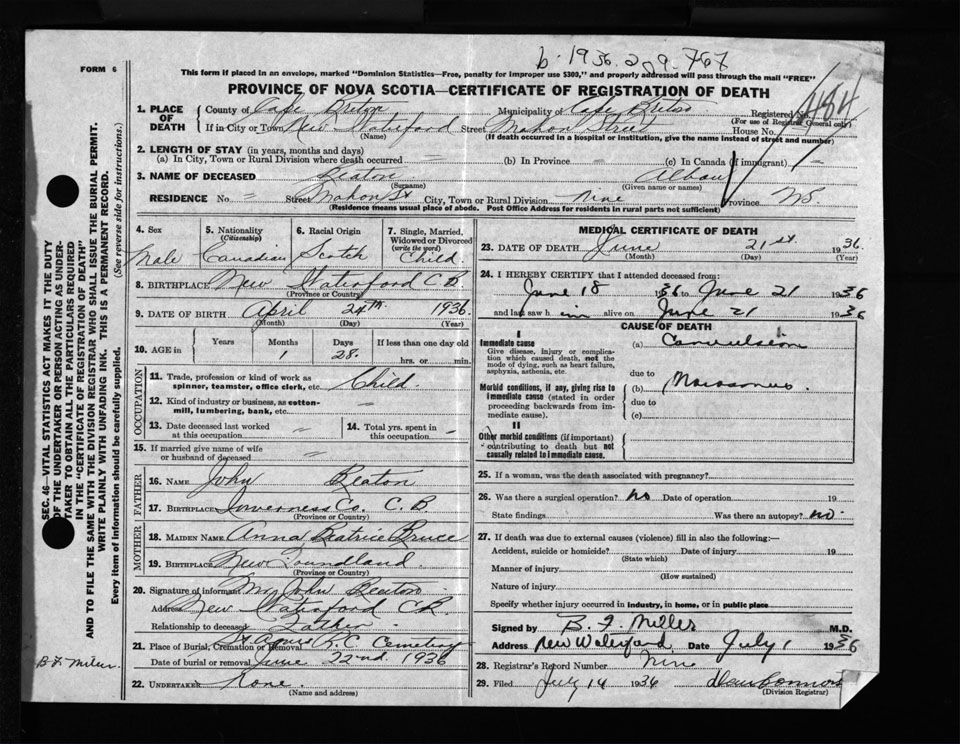 b. 1936. 209. 767
FORM 6
This form if placed in an envelope, marked "Dominion Statistics—Free, penalty for improper use $300," and properly addressed will pass through the mail "FREE"
PROVINCE OF NOVA SCOTIA—CERTIFICATE OF REGISTRATION OF DEATH
1. PLACE OF DEATH
County of Cape Breton Municipality of Cape Breton Registered No.
(For use of Registrar General only)
If in City or Town New Waterford Street Mahon Street House No.
(Name) (If death occurred in a hospital or institution, give the name instead of street and number)
2. LENGTH OF STAY (in years, months and days)
(a) In City, Town or Rural Division where death occurred (b) In Province (c) In Canada (if immigrant)
3. NAME OF DECEASED Beaton Alban
(Surname) (Given name or names)
RESIDENCE No. " Street Mahon St City, Town or Rural Division Nine Province NS.
(Residence means usual place of abode. Post Office Address for residents in rural parts not sufficient)
4. Sex
Male
5. Nationality (Citizenship)
Canadian
6. Racial Origin
Scotch
7. Single, Married, Widowed or Divorced (write the word)
Child.
8. BIRTHPLACE New Waterford C.B.
(Province or Country)
9. DATE OF BIRTH April 24th 1936
(Month) (Day) (Year)
10. AGE in Years Months Days If less than one day old
1 28. hrs. or min.
OCCUPATION
11. Trade, profession or kind of work as spinner, teamster, office clerk, etc. Child.
12. Kind of industry or business, as cotton-mill, lumbering, bank, etc. "
13. Date deceased last worked at this occupation "
14. Total yrs. spent in this occupation "
15. If married give name of wife or husband of deceased "
FATHER
16. NAME John Beaton
17. BIRTHPLACE Inverness Co. C.B.
(Province or Country)
MOTHER
18. MAIDEN NAME Anna Beatrice Bruce
19. BIRTHPLACE Newfoundland.
(Province or Country)
20. Signature of informant John Beaton
Address New Waterford C.B.
Relationship to deceased Father
21. Place of Burial, Cremation or Removal St Agnes R.C. Cemetery
Date of burial or removal June 22nd. 1936
22. UNDERTAKER None.
(Name and address)
MEDICAL CERTIFICATE OF DEATH
23. DATE OF DEATH June 21st. 1936.
(Month) (Day) (Year)
24. I HEREBY CERTIFY that I attended deceased from:
June 18 1936 to June 21 1936
and last saw him alive on June 21 1936
CAUSE OF DEATH
I
Immediate cause
Give disease, injury or complication which caused death, not the mode of dying, such as heart failure, asphyxia, asthenia, etc.
(a) Convulsion
due to
Morbid conditions, if any, giving rise to immediate cause (stated in order proceeding backwards from immediate cause).
(b)
due to
(c)
II
Other morbid conditions (if important) contributing to death but not causally related to immediate cause.
25. If a woman, was the death associated with pregnancy?
26. Was there a surgical operation? No Date of operation 19
State findings Was there an autopsy? no.
27. If death was due to external causes (violence) fill in also the following:—
Accident, suicide or homicide? Date of injury 19
(State which)
Manner of injury
(How sustained)
Nature of injury
Specify whether injury occurred in industry, in home, or in public place
Signed by B. F. Miller M.D.
Address New Waterford Date July 1 1936
28. Registrar's Record Number Nine
29. Filed July 14 1936
(Division Registrar)
SEC. 46—VITAL STATISTICS ACT MAKES IT THE DUTY
OF THE UNDERTAKER OR PERSON ACTING AS UNDER-
TAKER TO OBTAIN ALL THE PARTICULARS REQUIRED
IN THE "CERTIFICATE OF REGISTRATION OF DEATH"
AND TO FILE THE SAME WITH THE DIVISION REGISTRAR WHO SHALL ISSUE THE BURIAL PERMIT.
WRITE PLAINLY WITH UNFADING INK. THIS IS A PERMANENT RECORD.
Every item of information should be carefully supplied. (See reverse side for instructions.)
B.F. Miller.